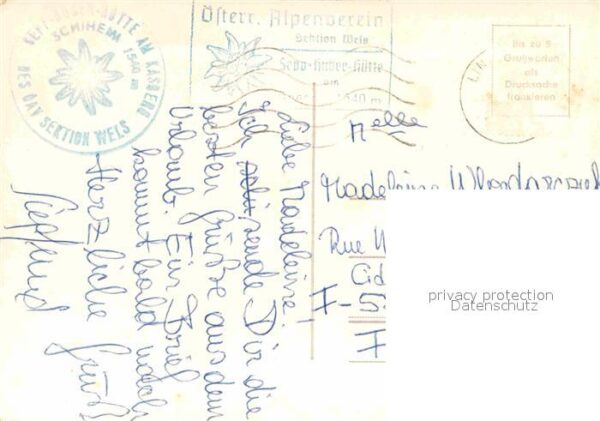 SEPP-HUBER-HÜTTE AM KASBERG
SCHIHEIM 1540 m
DES ÖAV SEKTION WELS
Österr. Alpenverein
Sektion Wels
Sepp-Huber-Hütte
am
1540 m
Bis zu 5
Grußworten
als
Drucksache
frankieren
Liebe Madeleine!
Ich sende Dir die
besten Grüße aus dem
Urlaub. Ein Brief
kommt bald nach
Herzliche Grüße
Siegfried
Melle
Madeleine
Rue
F-5
F
privacy protection
Datenschutz